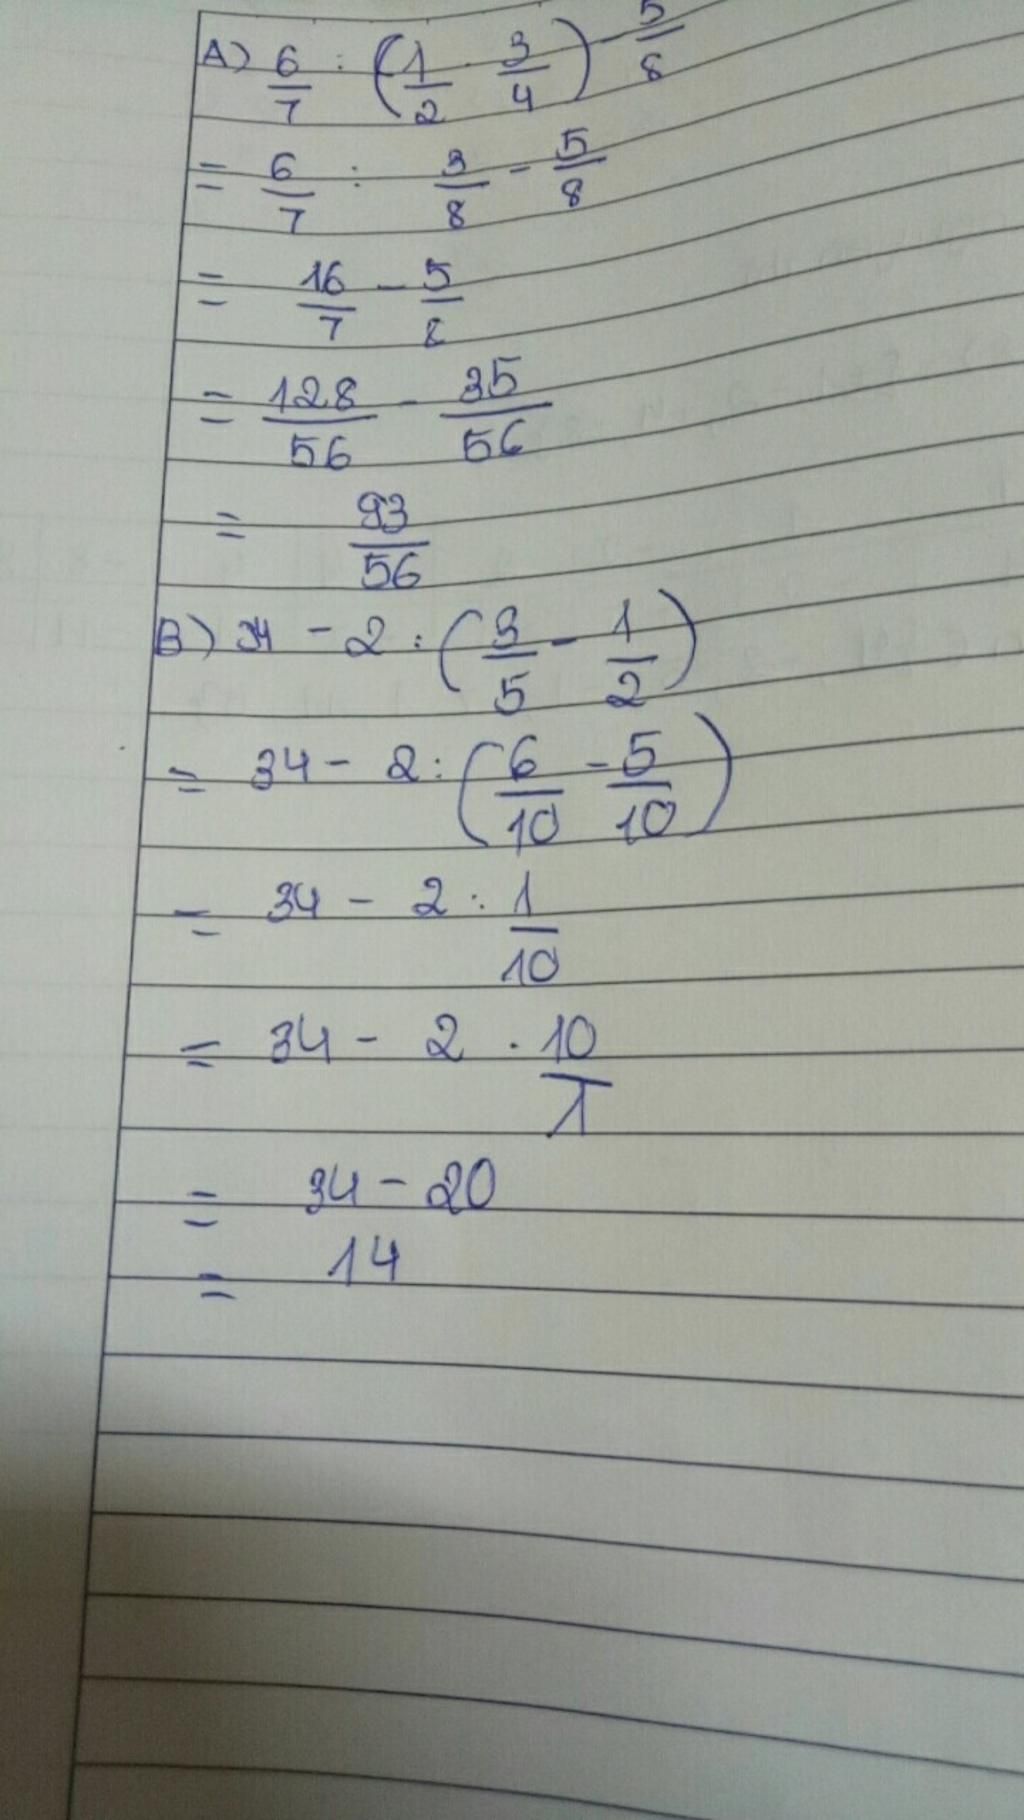 A) 6/7 : (1/2 · 3/4) - 5/8
= 6/7 : 3/8 - 5/8
= 16/7 - 5/8
= 128/56 - 35/56
= 93/56
B) 34 - 2 : (3/5 - 1/2)
= 34 - 2 : (6/10 - 5/10)
= 34 - 2 : 1/10
= 34 - 2 · 10/1
= 34 - 20
= 14